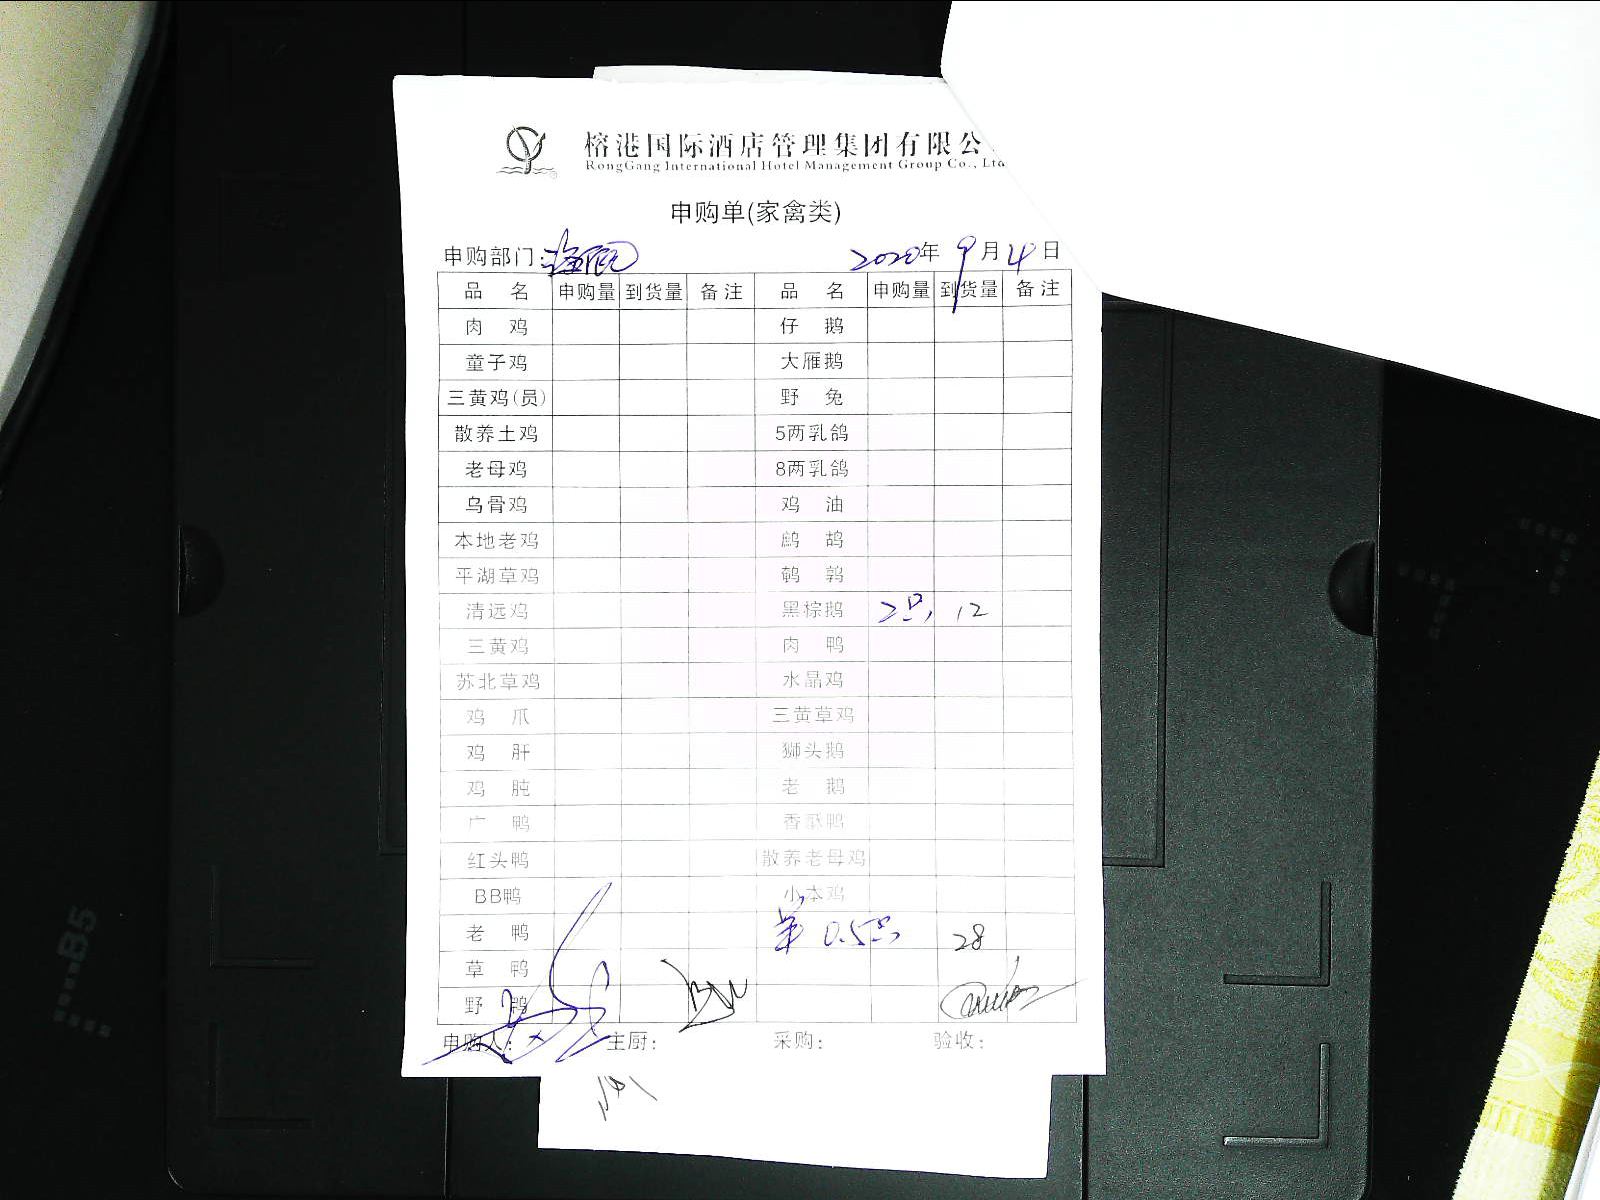 榕港国际酒店管理集团有限公
RongGang International Hotel Management Group Co., Ltd
申购单(家禽类)
申购部门: 2020年 9月 4日
品 名 申购量 到货量 备注 品 名 申购量 到货量 备注
肉 鸡 仔 鹅
童子鸡 大雁鹅
三黄鸡(员) 野 兔
散养土鸡 5两乳鸽
老母鸡 8两乳鸽
乌骨鸡 鸡 油
本地老鸡 鹧 鸪
平湖草鸡 鹌 鹑
清远鸡 黑棕鹅 2只, 12
三黄鸡 肉 鸭
苏北草鸡 水晶鸡
鸡 爪 三黄草鸡
鸡 肝 狮头鹅
鸡 肫 老 鹅
广 鸭 香酥鸭
红头鸭 散养老母鸡
BB鸭 小本鸡
老 鸭 羊 0.5只, 28
草 鸭
野 鸭
申购人: 主厨: 采购: 验收:
B5